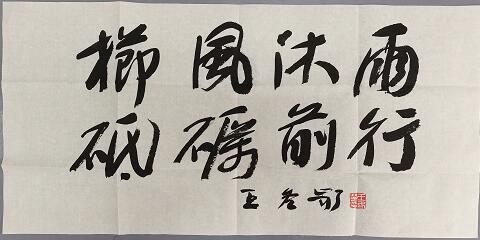 櫛風沐雨
砥礪前行
王